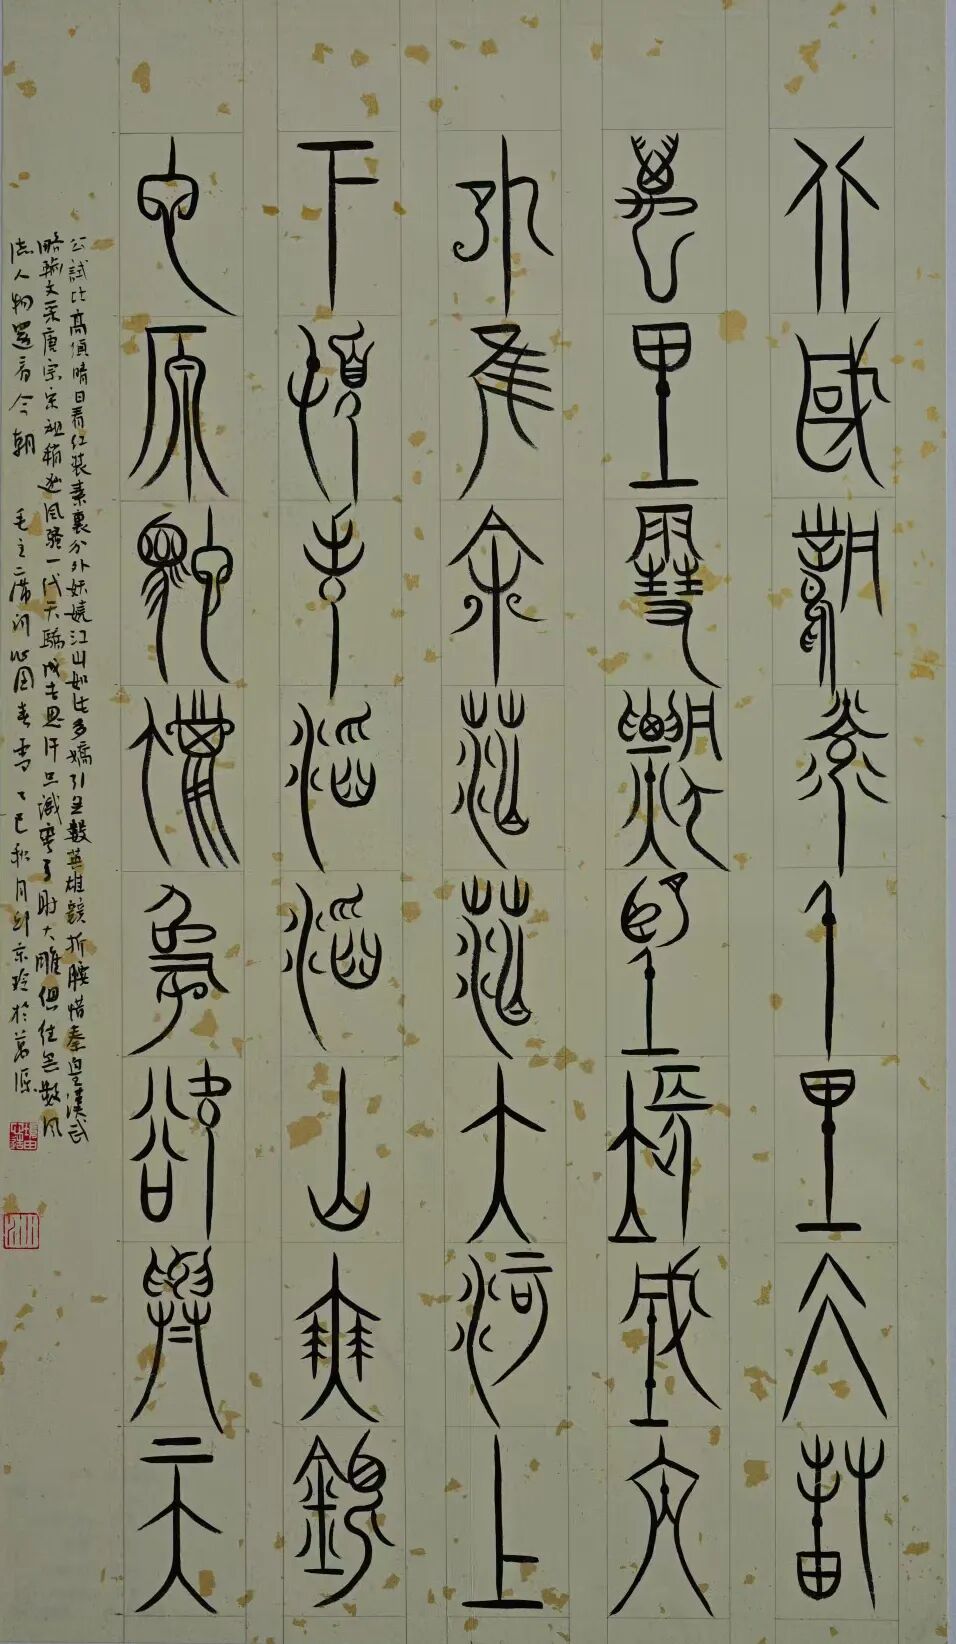 北國風光千里仌封
萬里雪飄望長城內
外惟余莽莽大河上
下頓失滔滔山舞銀
它原馳蠟象欲與天
公試比高須晴日看紅裝素裹分外妖嬈江山如此多嬌引無數英雄競折腰惜秦皇漢武
略輸文采唐宗宋祖稍遜風騷一代天驕成吉思汗只識彎弓射大雕俱往矣數风
流人物還看今朝 毛主席词沁園春雪 乙巳秋月邱京玲於萬源